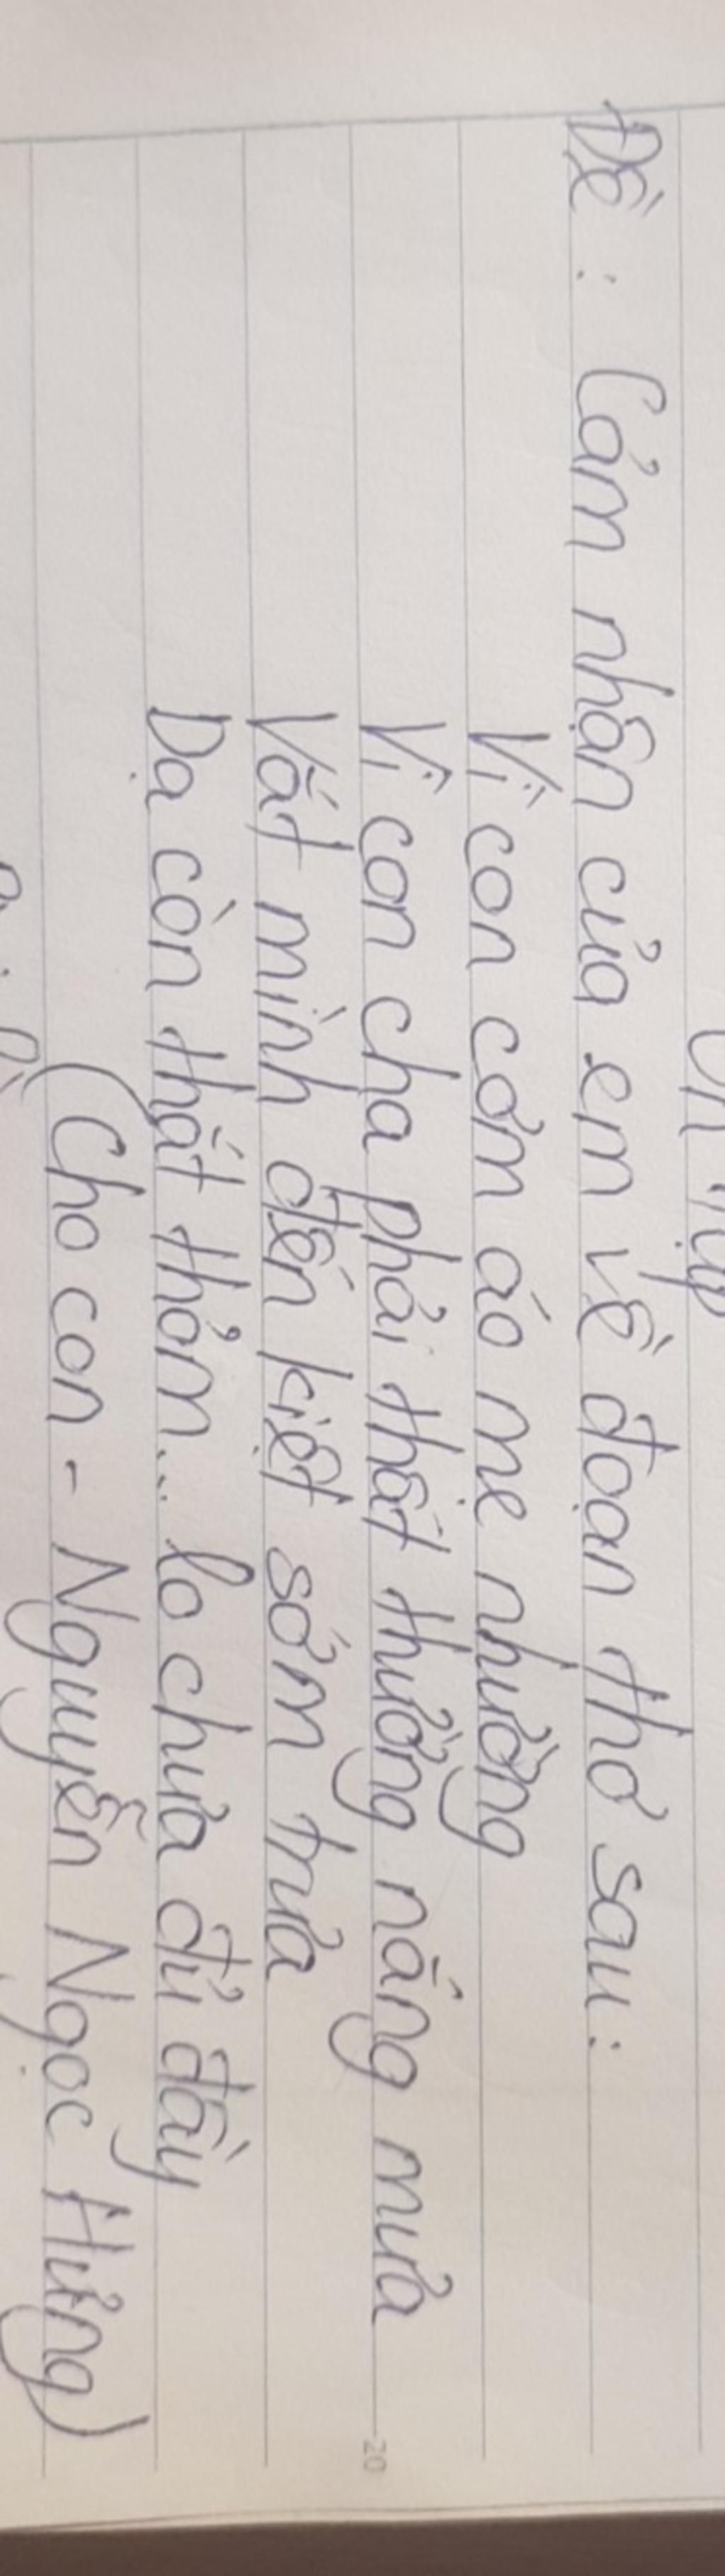 Đề : Cảm nhận của em về đoạn thơ sau:
Vì con cơm áo mẹ nhường
Vì con cha phải thất thường nắng mưa
Vắt mình đến kiệt sớm trưa
Dạ còn thắt thỏm... lo chưa đủ đầy
(Cho con - Nguyễn Ngọc Hưng)
20